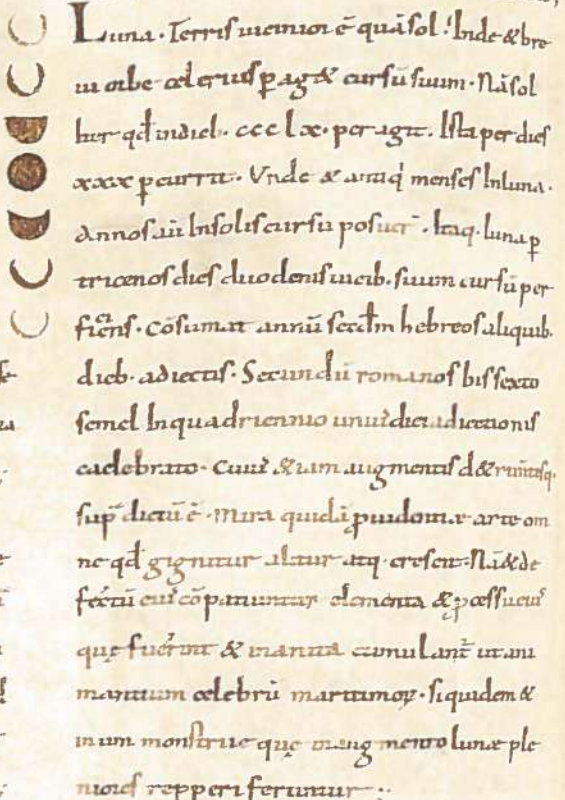 Luna. Terris vicinior ē quā sol. Inde & bre
vi orbe celerius ꝑag& cursū suum. Nā sol
iter qđ in dieb. ccclxv. peragit. Ista per dies
xxx ꝑcurrit. Unde & antiqi menses In luna.
Annos aū In solis cursu posuer̄. Itaq. luna ꝑ
tricenos dies duodenis vicib. suum cursū per
ficiens. Cōsumat annū scdm hebreos aliquib.
dieb. adiectis. Secundū romanos bissexto
semel In quadriennio unius diei adiectionis
caelebrato. Cuius &iam augmentis d&rimtisq.
sup̄ dictū ē. Mira quidā ꝓvidentiæ arte om
ne qđ gignitur alitur atq. crescit. Nā & de
fectū eius cōpatiuntur elementa & ꝓcessu eius
quę fuerint & inanita cumulant̄ ut ani
mantium celebrū maritimoꝝ. siquidem &
in um monstrue quę in augmento lunæ ple
niores repperiferuntur :